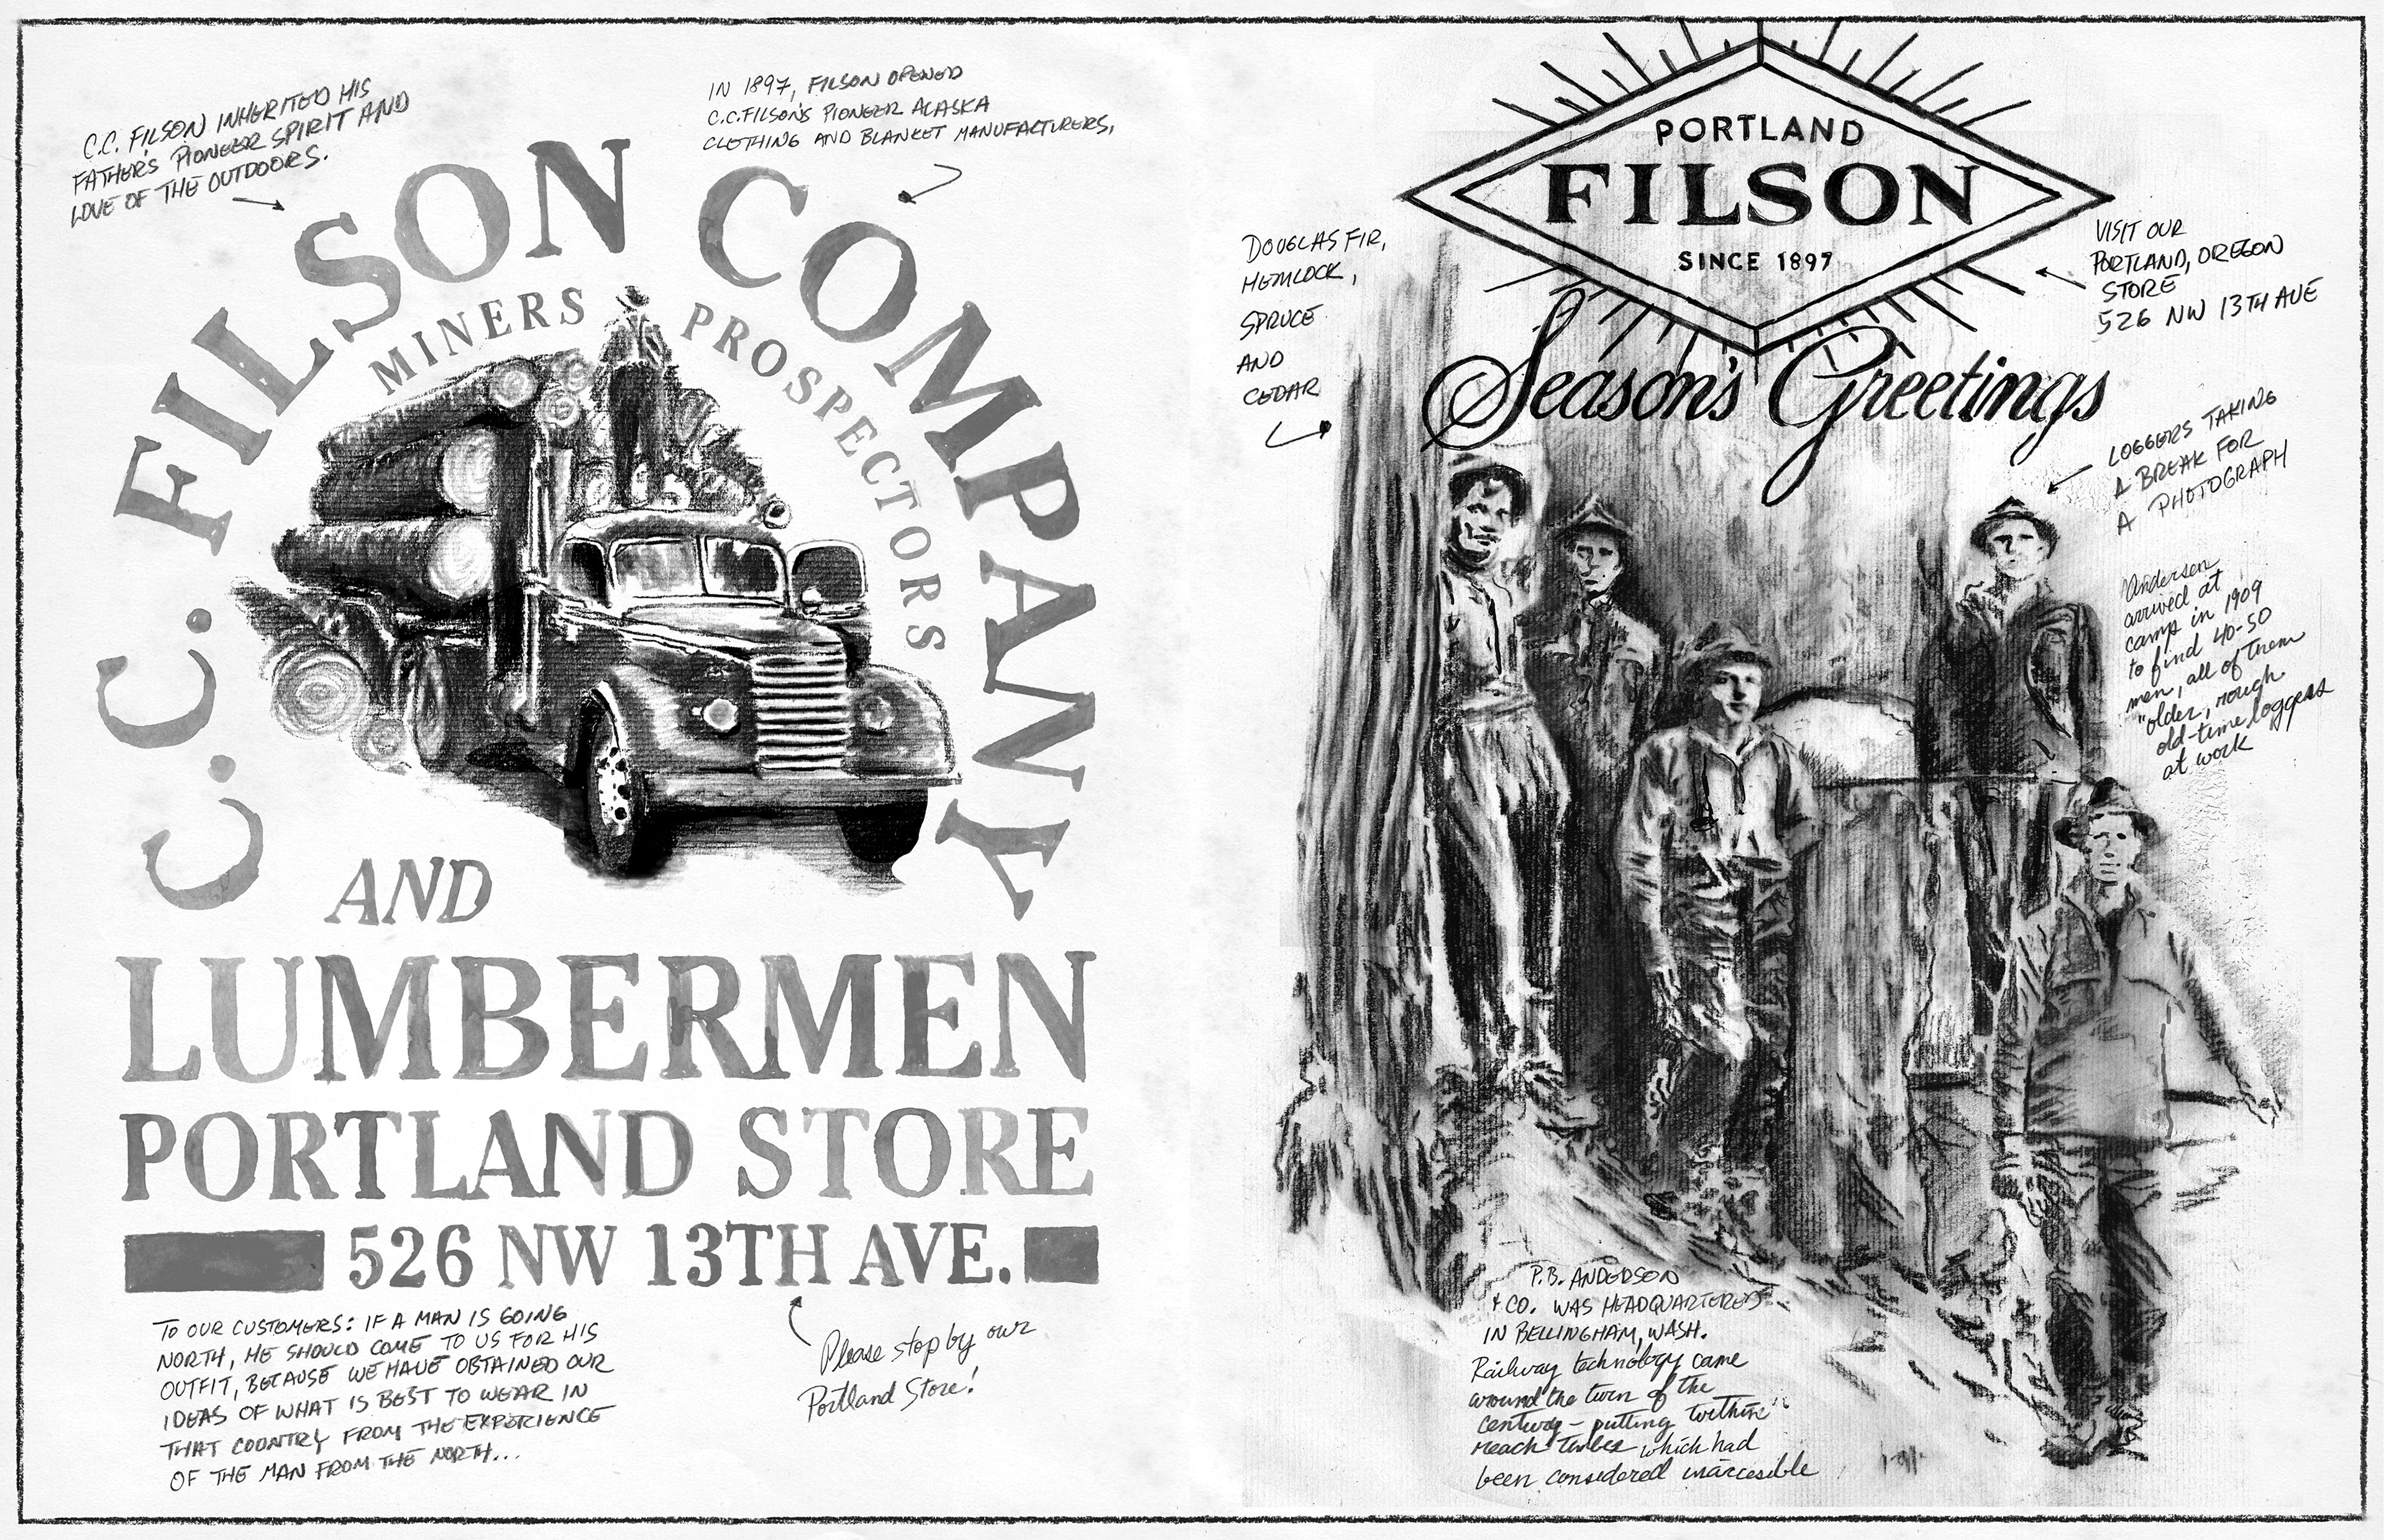 C.C. FILSON INHERITED HIS
FATHER'S PIONEER SPIRIT AND
LOVE OF THE OUTDOORS.
IN 1897, FILSON OPENED
C.C.FILSON'S PIONEER ALASKA
CLOTHING AND BLANKET MANUFACTURERS,
C.C. FILSON COMPANY
MINERS PROSPECTORS
AND
LUMBERMEN
PORTLAND STORE
526 NW 13TH AVE.
TO OUR CUSTOMERS: IF A MAN IS GOING
NORTH, HE SHOULD COME TO US FOR HIS
OUTFIT, BECAUSE WE HAVE OBTAINED OUR
IDEAS OF WHAT IS BEST TO WEAR IN
THAT COONTRY FROM THE EXPERIENCE
OF THE MAN FROM THE NORTH...
Please stop by our
Portland Store!
PORTLAND
FILSON
SINCE 1897
Season's Greetings
DOUGLAS FIR,
HEMLOCK,
SPRUCE
AND
CEDAR
VISIT OUR
PORTLAND, OREGON
STORE
526 NW 13TH AVE
LOGGERS TAKING
A BREAK FOR
A PHOTOGRAPH
Andersen
arrived at
camp in 1909
to find 40-50
men, all of them
"older, rough
old-time loggers
at work
P.B. ANDERSON
& CO. WAS HEADQUARTERED
IN BELLINGHAM, WASH.
Railway technology came
around the turn of the
century – putting within
reach timber which had
been considered inaccesible